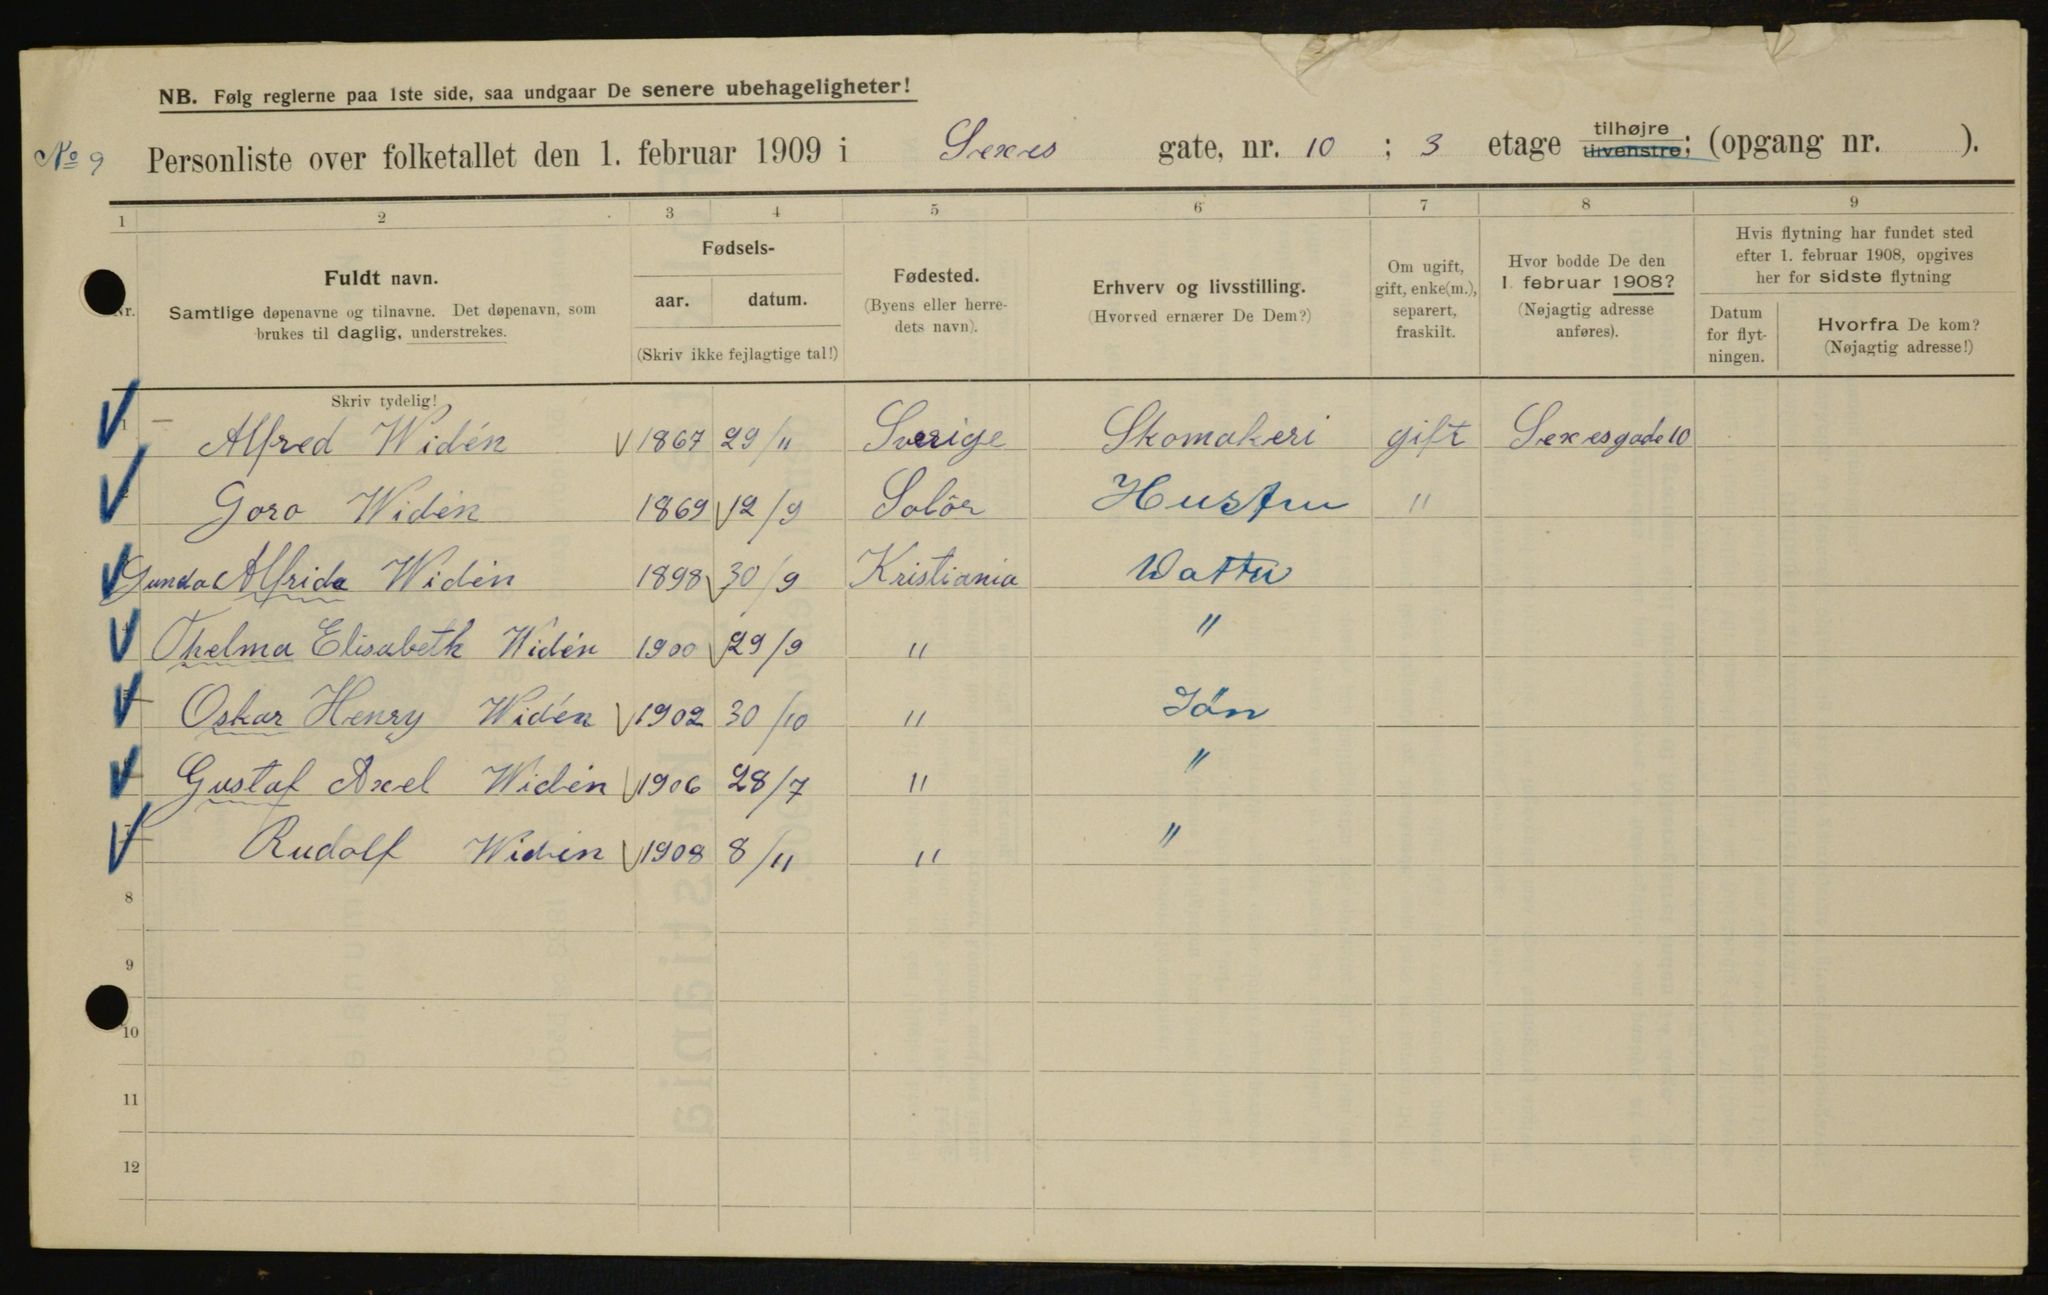 NB. Følg reglerne paa 1ste side, saa undgaar De senere ubehageligheter!
No 9
Personliste over folketallet den 1. februar 1909 i Sexes gate, nr. 10 ; 3 etage tilhøjre tilvenstre; (opgang nr. ).
1 2 3 4 5 6 7 8 9
Nr.
Fuldt navn.
Samtlige døpenavne og tilnavne. Det døpenavn, som
brukes til daglig, understrekes.
Fødsels-
aar. datum.
(Skriv ikke fejlagtige tal!)
Fødested.
(Byens eller herre-
dets navn).
Erhverv og livsstilling.
(Hvorved ernærer De Dem?)
Om ugift,
gift, enke(m.),
separert,
fraskilt.
Hvor bodde De den
1. februar 1908?
(Nøjagtig adresse
anføres).
Hvis flytning har fundet sted
efter 1. februar 1908, opgives
her for sidste flytning
Datum
for flyt-
ningen.
Hvorfra De kom?
(Nøjagtig adresse!)
Skriv tydelig!
1 Alfred Widén 1867 29/11 Sverige Skomakeri gift Sexesgade 10
Goro Widén 1869 12/9 Solör Hustru "
Gunda Alfrida Widén 1898 30/9 Kristiania Datter
Thelma Elisabeth Widén 1900 29/9 " "
Oskar Henry Widén 1902 30/10 " Sön
Gustaf Axel Widén 1906 28/7 " "
Rudolf Widén 1908 8/11 " "
8
9
10
11
12